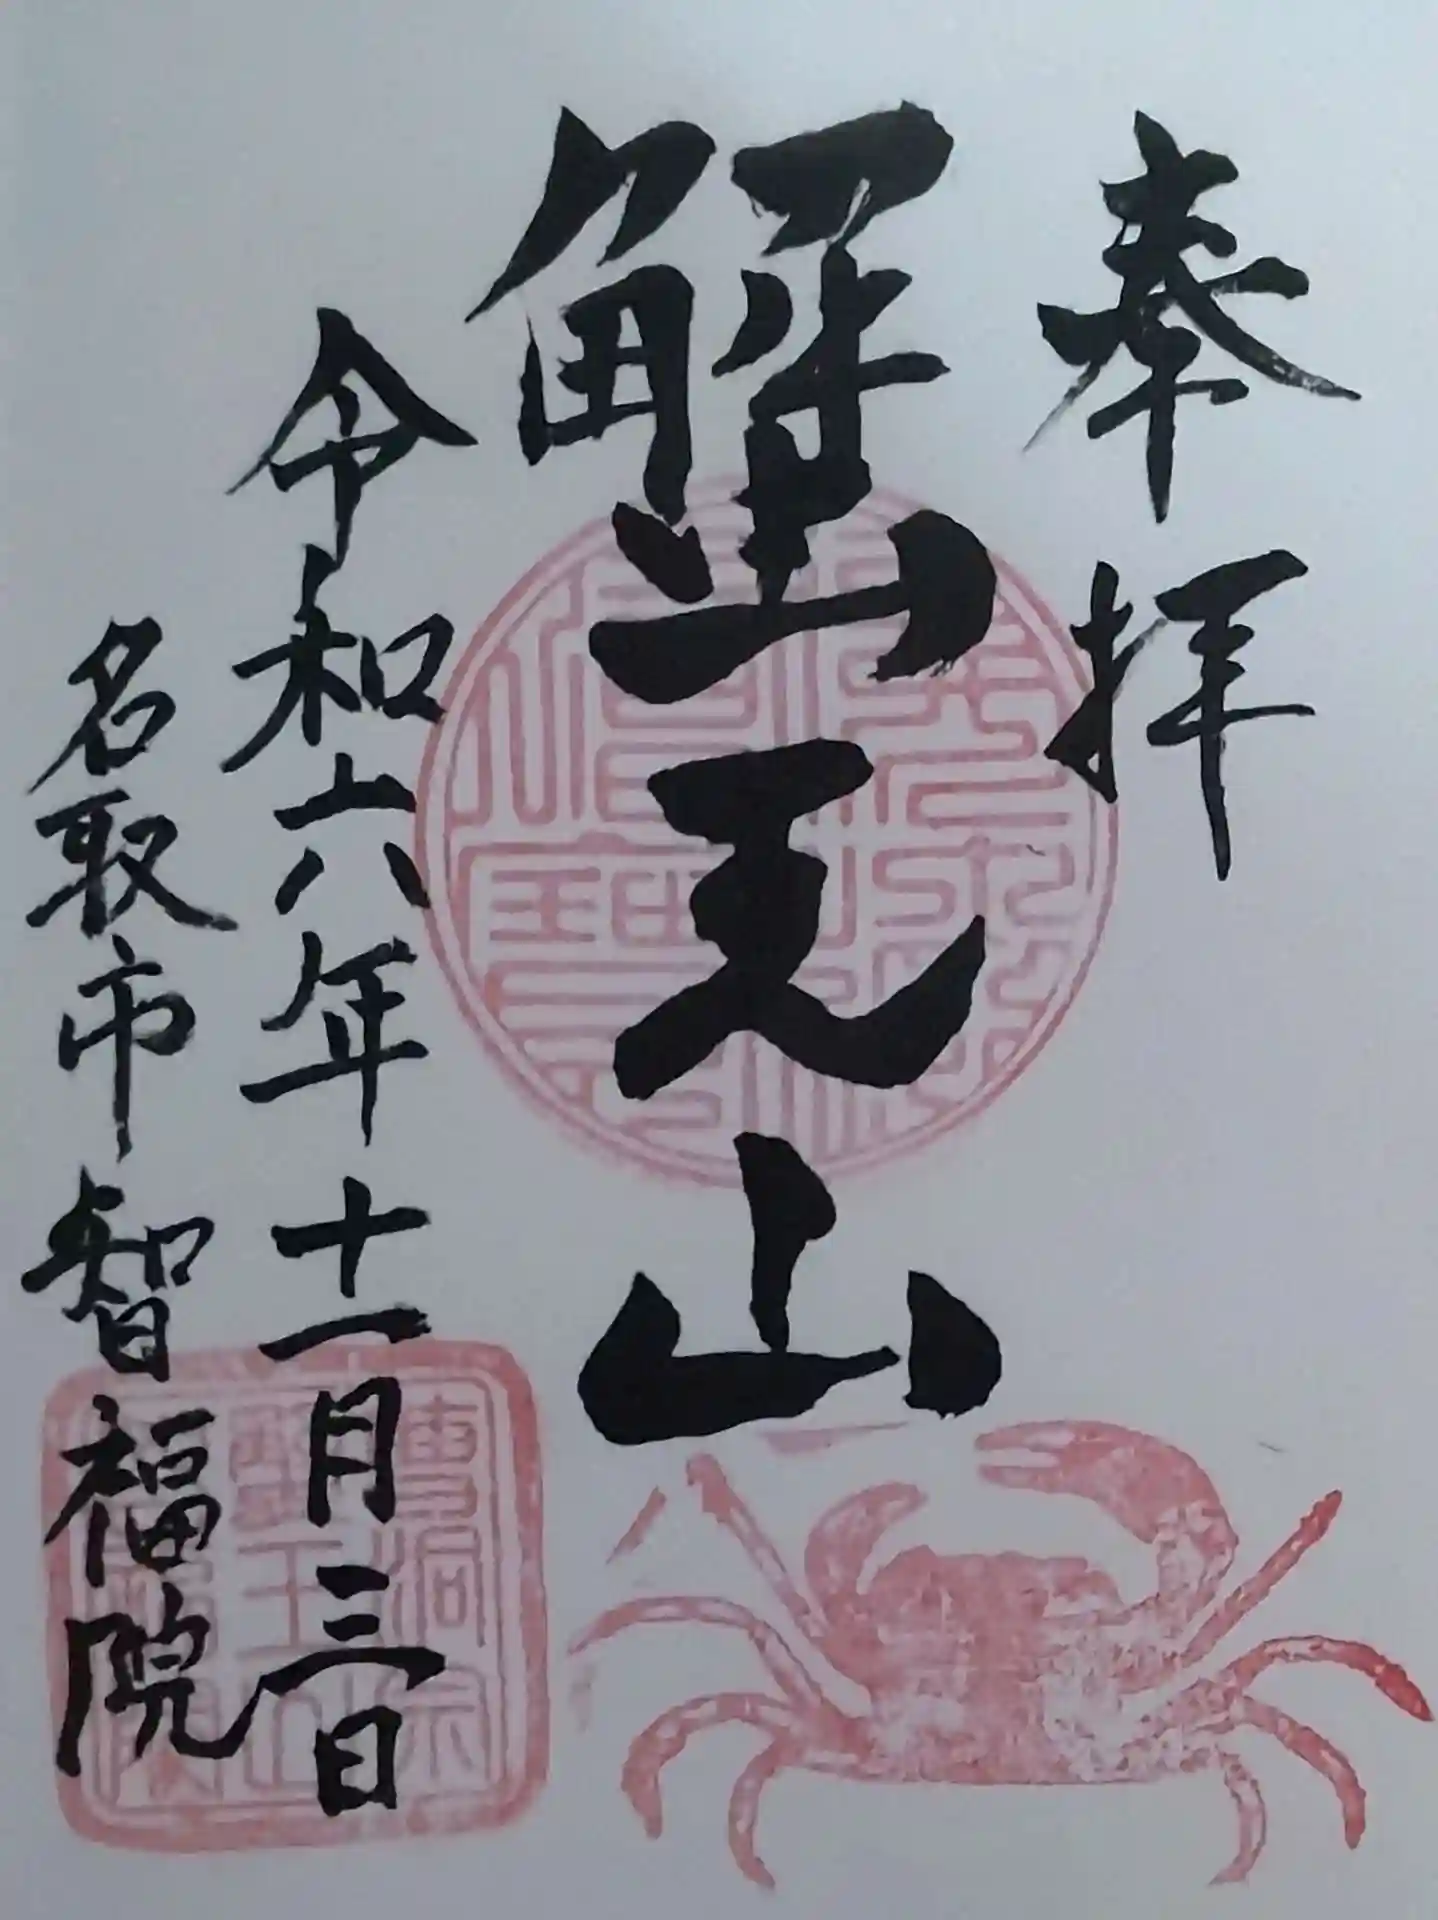 奉拝
蟹王山
令和六年十一月三日
名取市 智福院